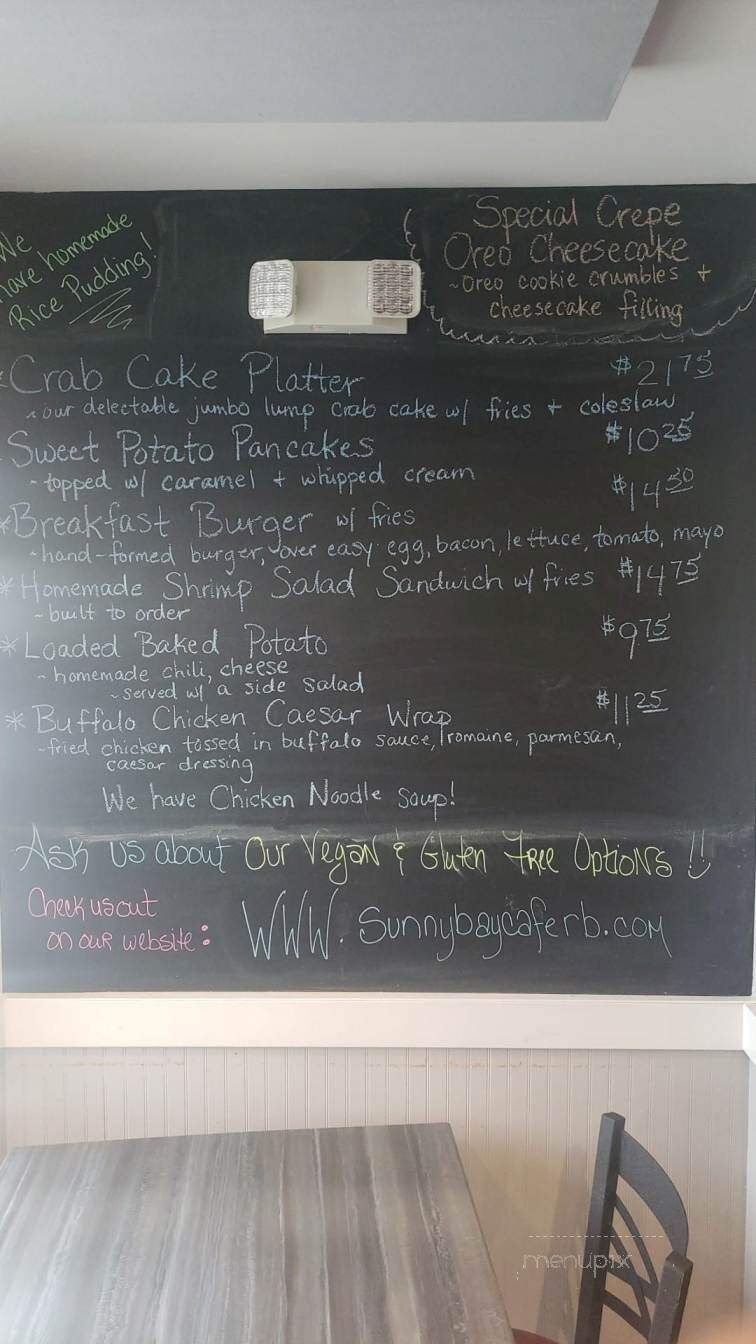 We
have homemade
Rice Pudding!
Special Crepe
Oreo Cheesecake
~Oreo cookie crumbles +
cheesecake filling
*Crab Cake Platter $21 75
~our delectable jumbo lump crab cake w/ fries + coleslaw
Sweet Potato Pancakes $10 25
~topped w/ caramel + whipped cream
*Breakfast Burger w/ fries $14 50
~hand-formed burger, over easy egg, bacon, lettuce, tomato, mayo
*Homemade Shrimp Salad Sandwich w/ fries $14 75
~built to order
*Loaded Baked Potato $9 75
~homemade chili, cheese
~served w/ a side salad
*Buffalo Chicken Caesar Wrap $11 25
~fried chicken tossed in buffalo sauce, romaine, parmesan,
caesar dressing
We have Chicken Noodle Soup!
Ask us about Our Vegan & Gluten Free Options!!
Check us out
on our website:
WWW.Sunnybaycaferb.com
menupix